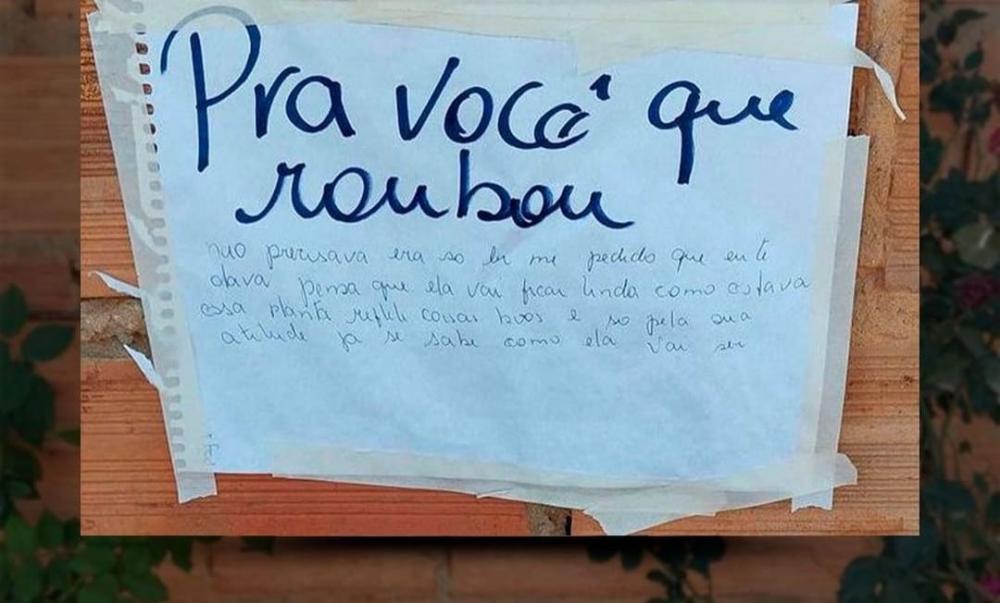 Pra você que
roubou
não precisava era so ter me pedido que eu te
dava pensa que ela vai ficar linda como estava
essa planta reflete coisas boas e so pela sua
atitude ja se sabe como ela vai ser